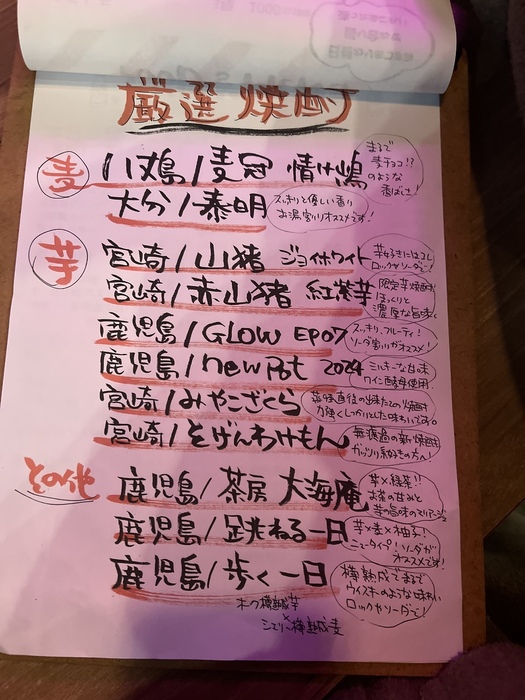 厳選焼酎
麦
八丈島/麦冠 情け嶋
まるで
麦チョコ!?
のような
香ばしさ!
大分/泰明
スッキリと優しい香り
お湯割りオススメです!
芋
宮崎/山猪 ジョイホワイト
芋好きにはコレ
ロックやソーダで!
宮崎/赤山猪 紅茶芋
限定芋焼酎
ほっくりと
濃厚な旨味
鹿児島/GLOW EP07
スッキリ、フルーティ!
ソーダ割りがオススメ!
鹿児島/new Pot 2024
ミルキーな甘味
ワイン酵母使用
宮崎/みやこざくら
蒸留直後の出来たての焼酎
力強くしっかりとした味わいです。
宮崎/とげんわけもん
無濾過の新焼酎
ガッツリ系好きの方へ!
その他
鹿児島/茶房 大海庵
芋×緑茶!!
お茶の甘みと
芋の旨味のマリアージュ
鹿児島/跳ねる一日
芋×麦×柚子!
ニュータイプ!ソーダが
オススメです!
鹿児島/歩く一日
樽熟成でまるで
ウイスキーのような味わい
ロックやソーダで!
オーク樽熟成芋
×
シェリー樽熟成麦